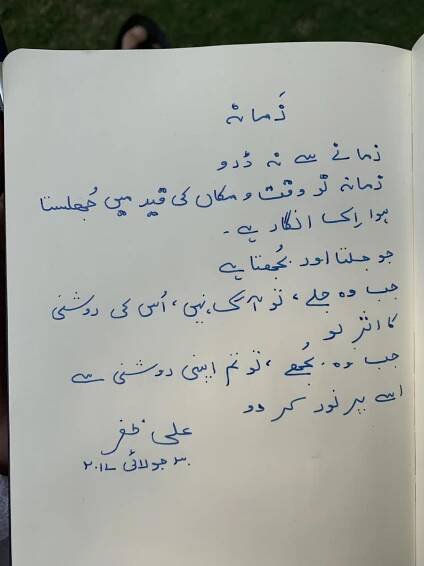 زَمانہ
زمانے سے نہ ڈرو
زمانہ تو وقت و مکاں کی قید میں جُھلستا
ہوا اِک انگار ہے۔
جو جلتا اور بُجھتا ہے
جب وہ جلے، تو تم نہیں، اُس کی روشنی
کا اثر لو
جب وہ بُجھے، تو تم اپنی روشنی سے
اسے پر نور کر دو
علی ظفر
۳۰ جولائی ۲۰۱۷